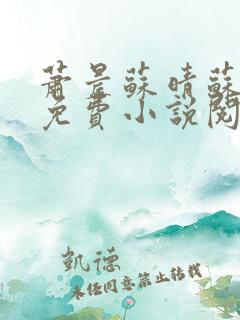 蕭景蘇晴蘇
免費小說閱
凱德
未經同意禁止轉載